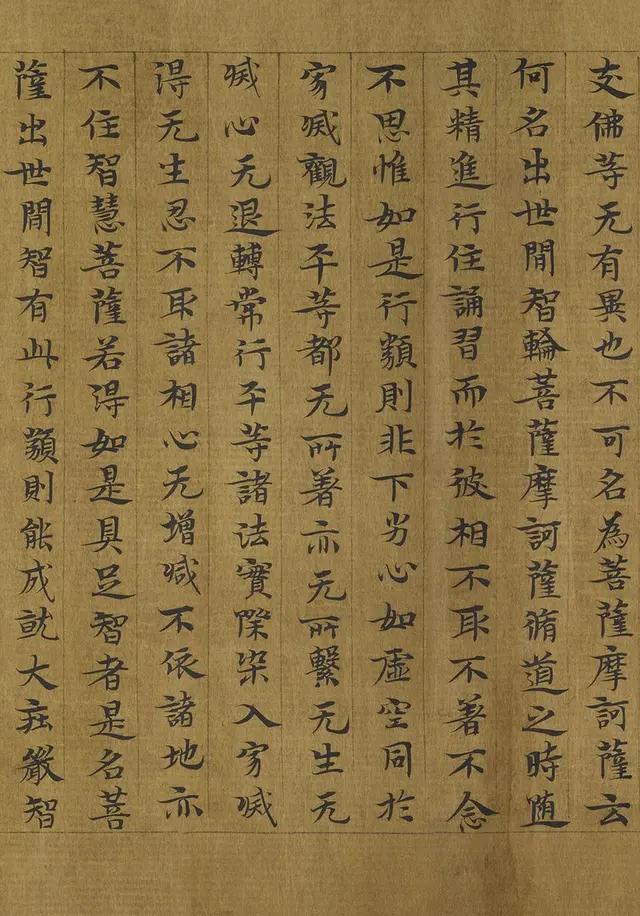 交佛等无有異也不可名為菩薩摩訶薩云
何名出世間智輪菩薩摩訶薩脩道之時随
其精進行住誦習而於彼相不取不著不念
不思惟如是行類則非下劣心如虛空同於
寂滅觀法平等都无所著亦无所繫无生无
滅心无退轉常行平等諸法實際染入寂滅
得无生忍不取諸相心无增减不依諸地亦
不住智慧菩薩若得如是具足智者是名菩
薩出世間智有此行類則能成就大莊嚴智